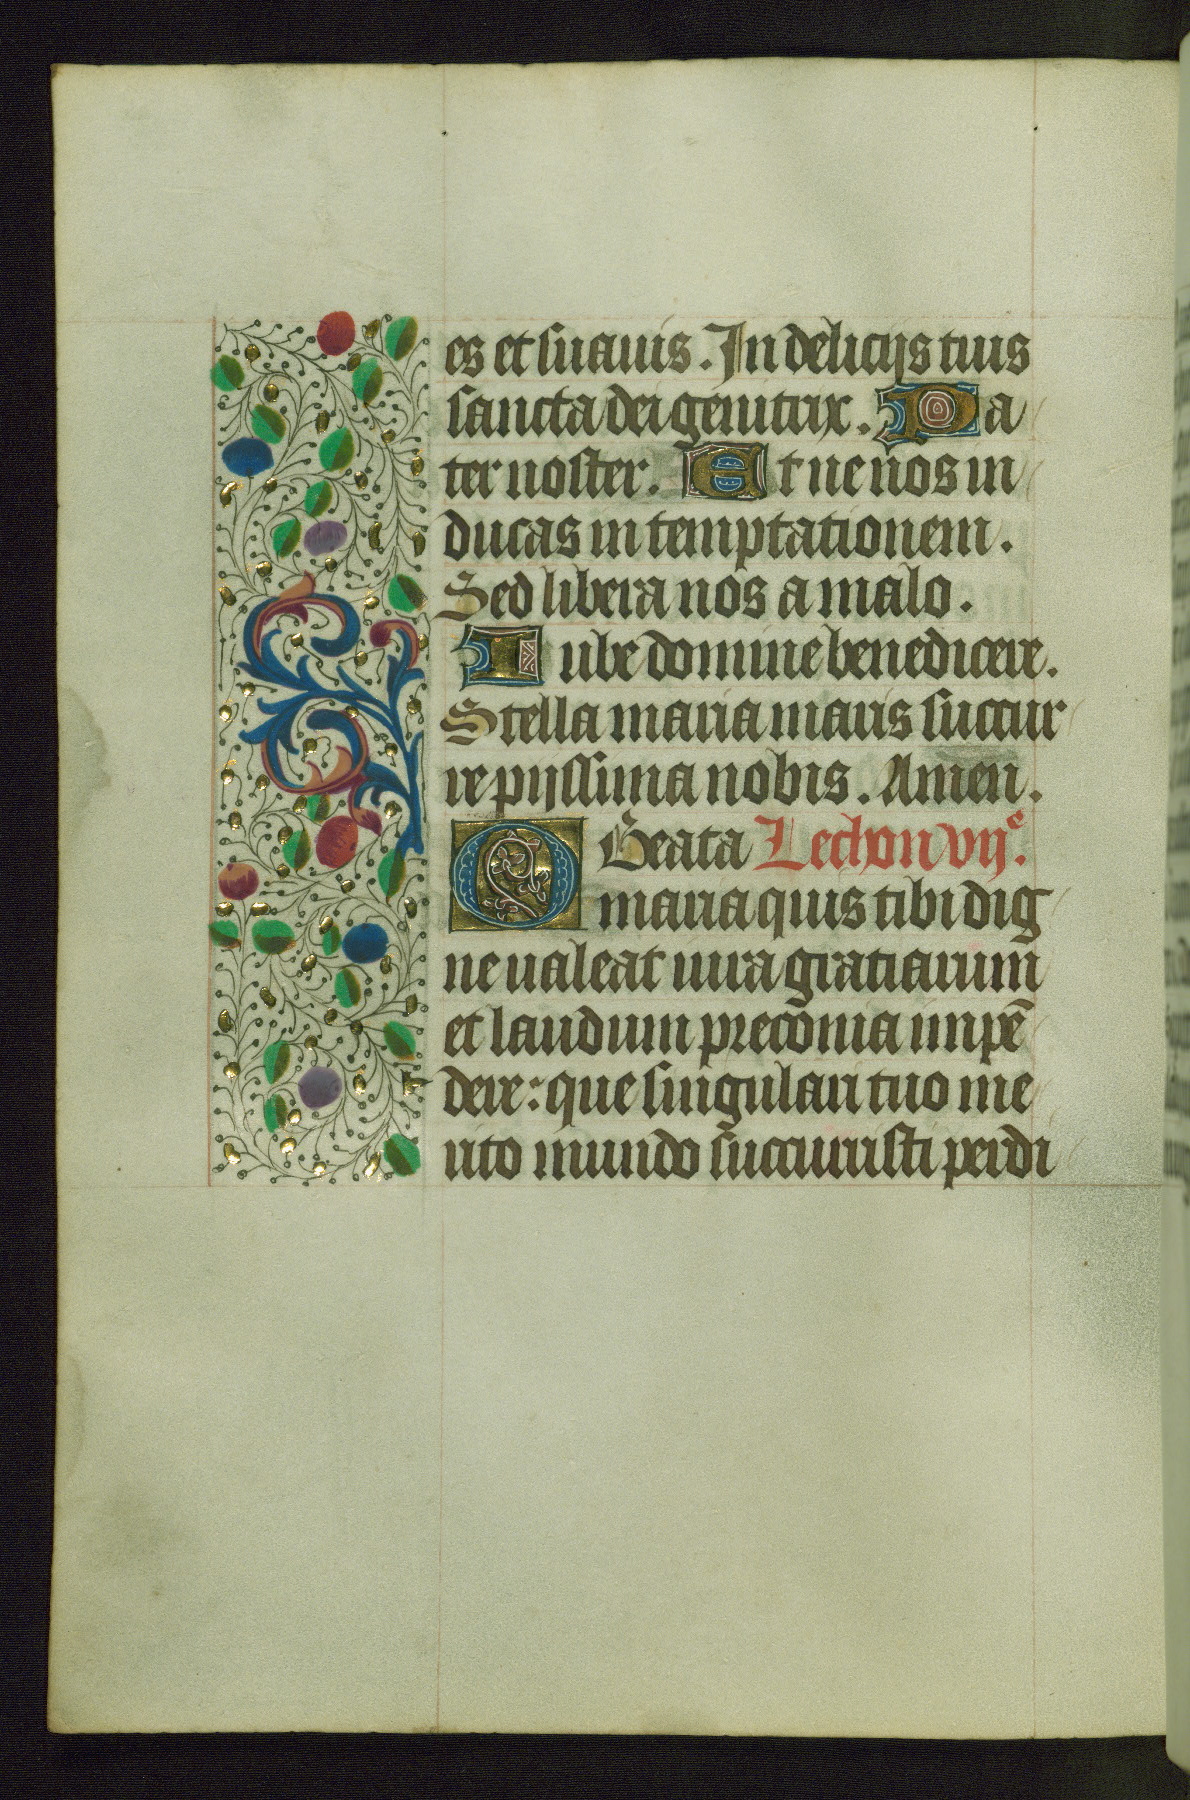 es et suauis. In delicijs tuis
sancta dei genitrix. Pa
ter noster. Et ne nos in
ducas in temptationem.
Sed libera nos a malo.
Iube domine benedicere.
Stella maria maris succur
re pijssima nobis. Amen.
O Beata Lechon vijᵉ.
maria quis tibi dig
ne ualeat iura gratiarum
et laudum preconia impē
dere: que singulari tuo me
rito mundo succurristi perdi